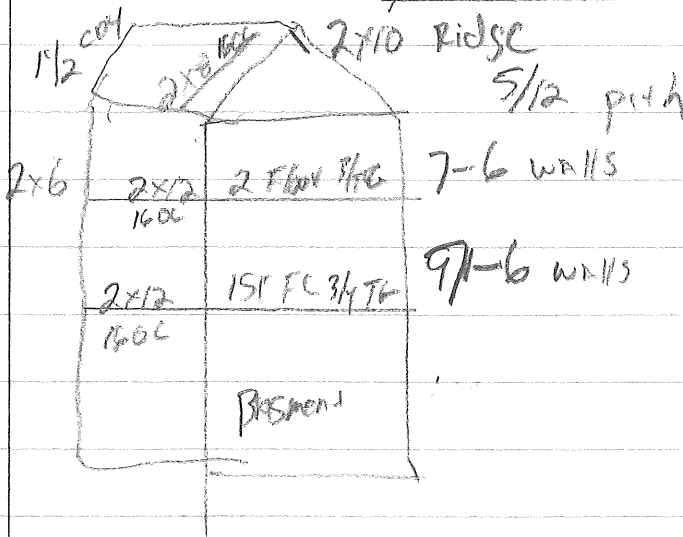 1/2 CDX
2x8 16OC
2x10 Ridge
5/12 pitch
2x6
2x12
16 OC
2 Floor 3/4 TG
7-6 walls
9-6 walls
2x12
16 OC
1ST FL 3/4 TG
Basment